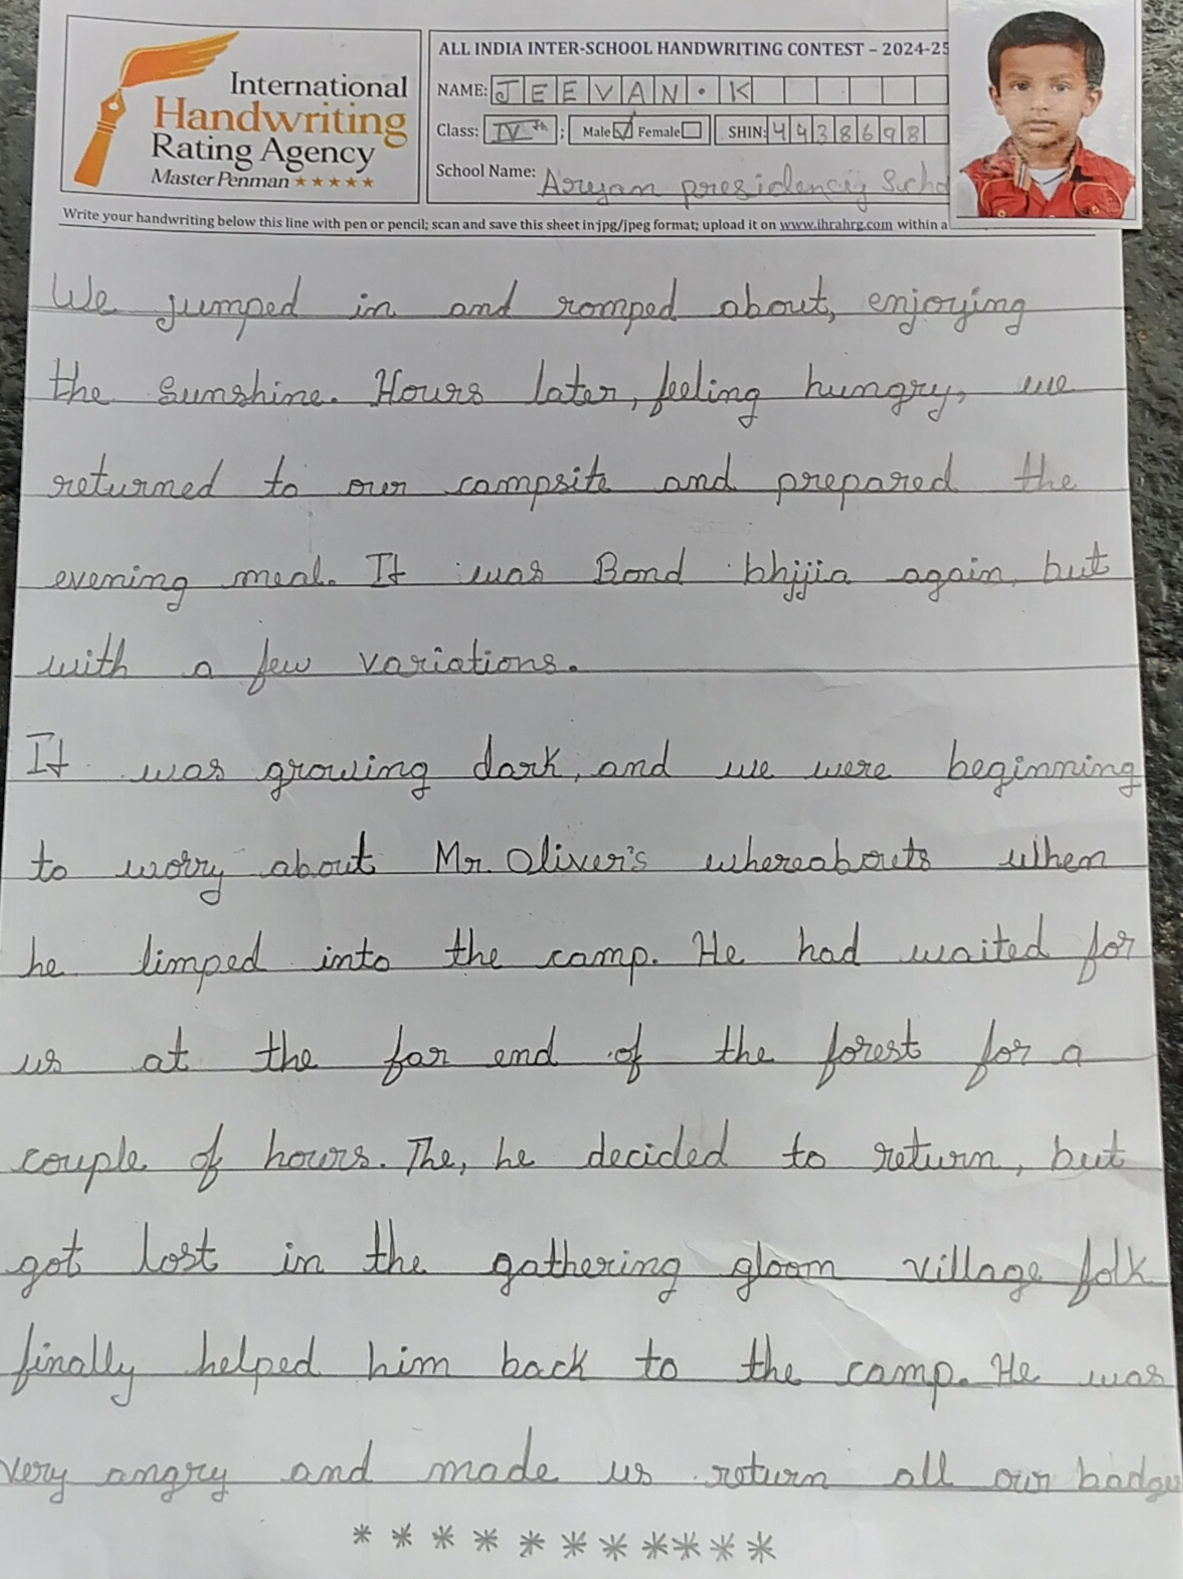 International
Handwriting
Rating Agency
Master Penman ★★★★★
ALL INDIA INTER-SCHOOL HANDWRITING CONTEST – 2024-25
NAME: JEEVAN.K
Class: IVth ; Male ☑ Female ☐ SHIN: 4438698
School Name: Aryan presidency Scho
Write your handwriting below this line with pen or pencil; scan and save this sheet in jpg/jpeg format; upload it on www.ihrahrg.com within a
We jumped in and romped about, enjoying
the Sunshine. Hours later, feeling hungry, we
returned to our campsite and prepared the
evening meal. It was Bond bhjjia again, but
with a few variations.
It was growing dark, and we were beginning
to worry about Mr. Oliver's whereabouts when
he limped into the camp. He had waited for
us at the far end of the forest for a
couple of hours. The, he decided to return, but
got lost in the gathering gloom village folk
finally helped him back to the camp. He was
very angry and made us return all our
* * * * * * * * * * *